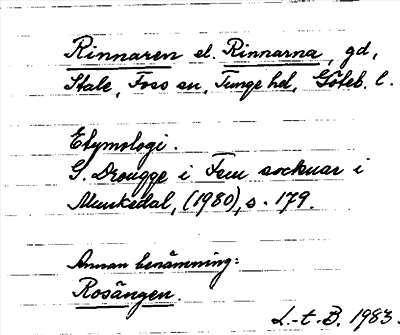 Rinnaren el. Rinnarna, gd,
Stale, Foss sn, Tunge hd, Göteb. l.
Etymologi.
G. Drougge i Fem socknar i
Munkedal, (1980), s. 179.
Annan benämning:
Rosängen.
L-t B. 1983.